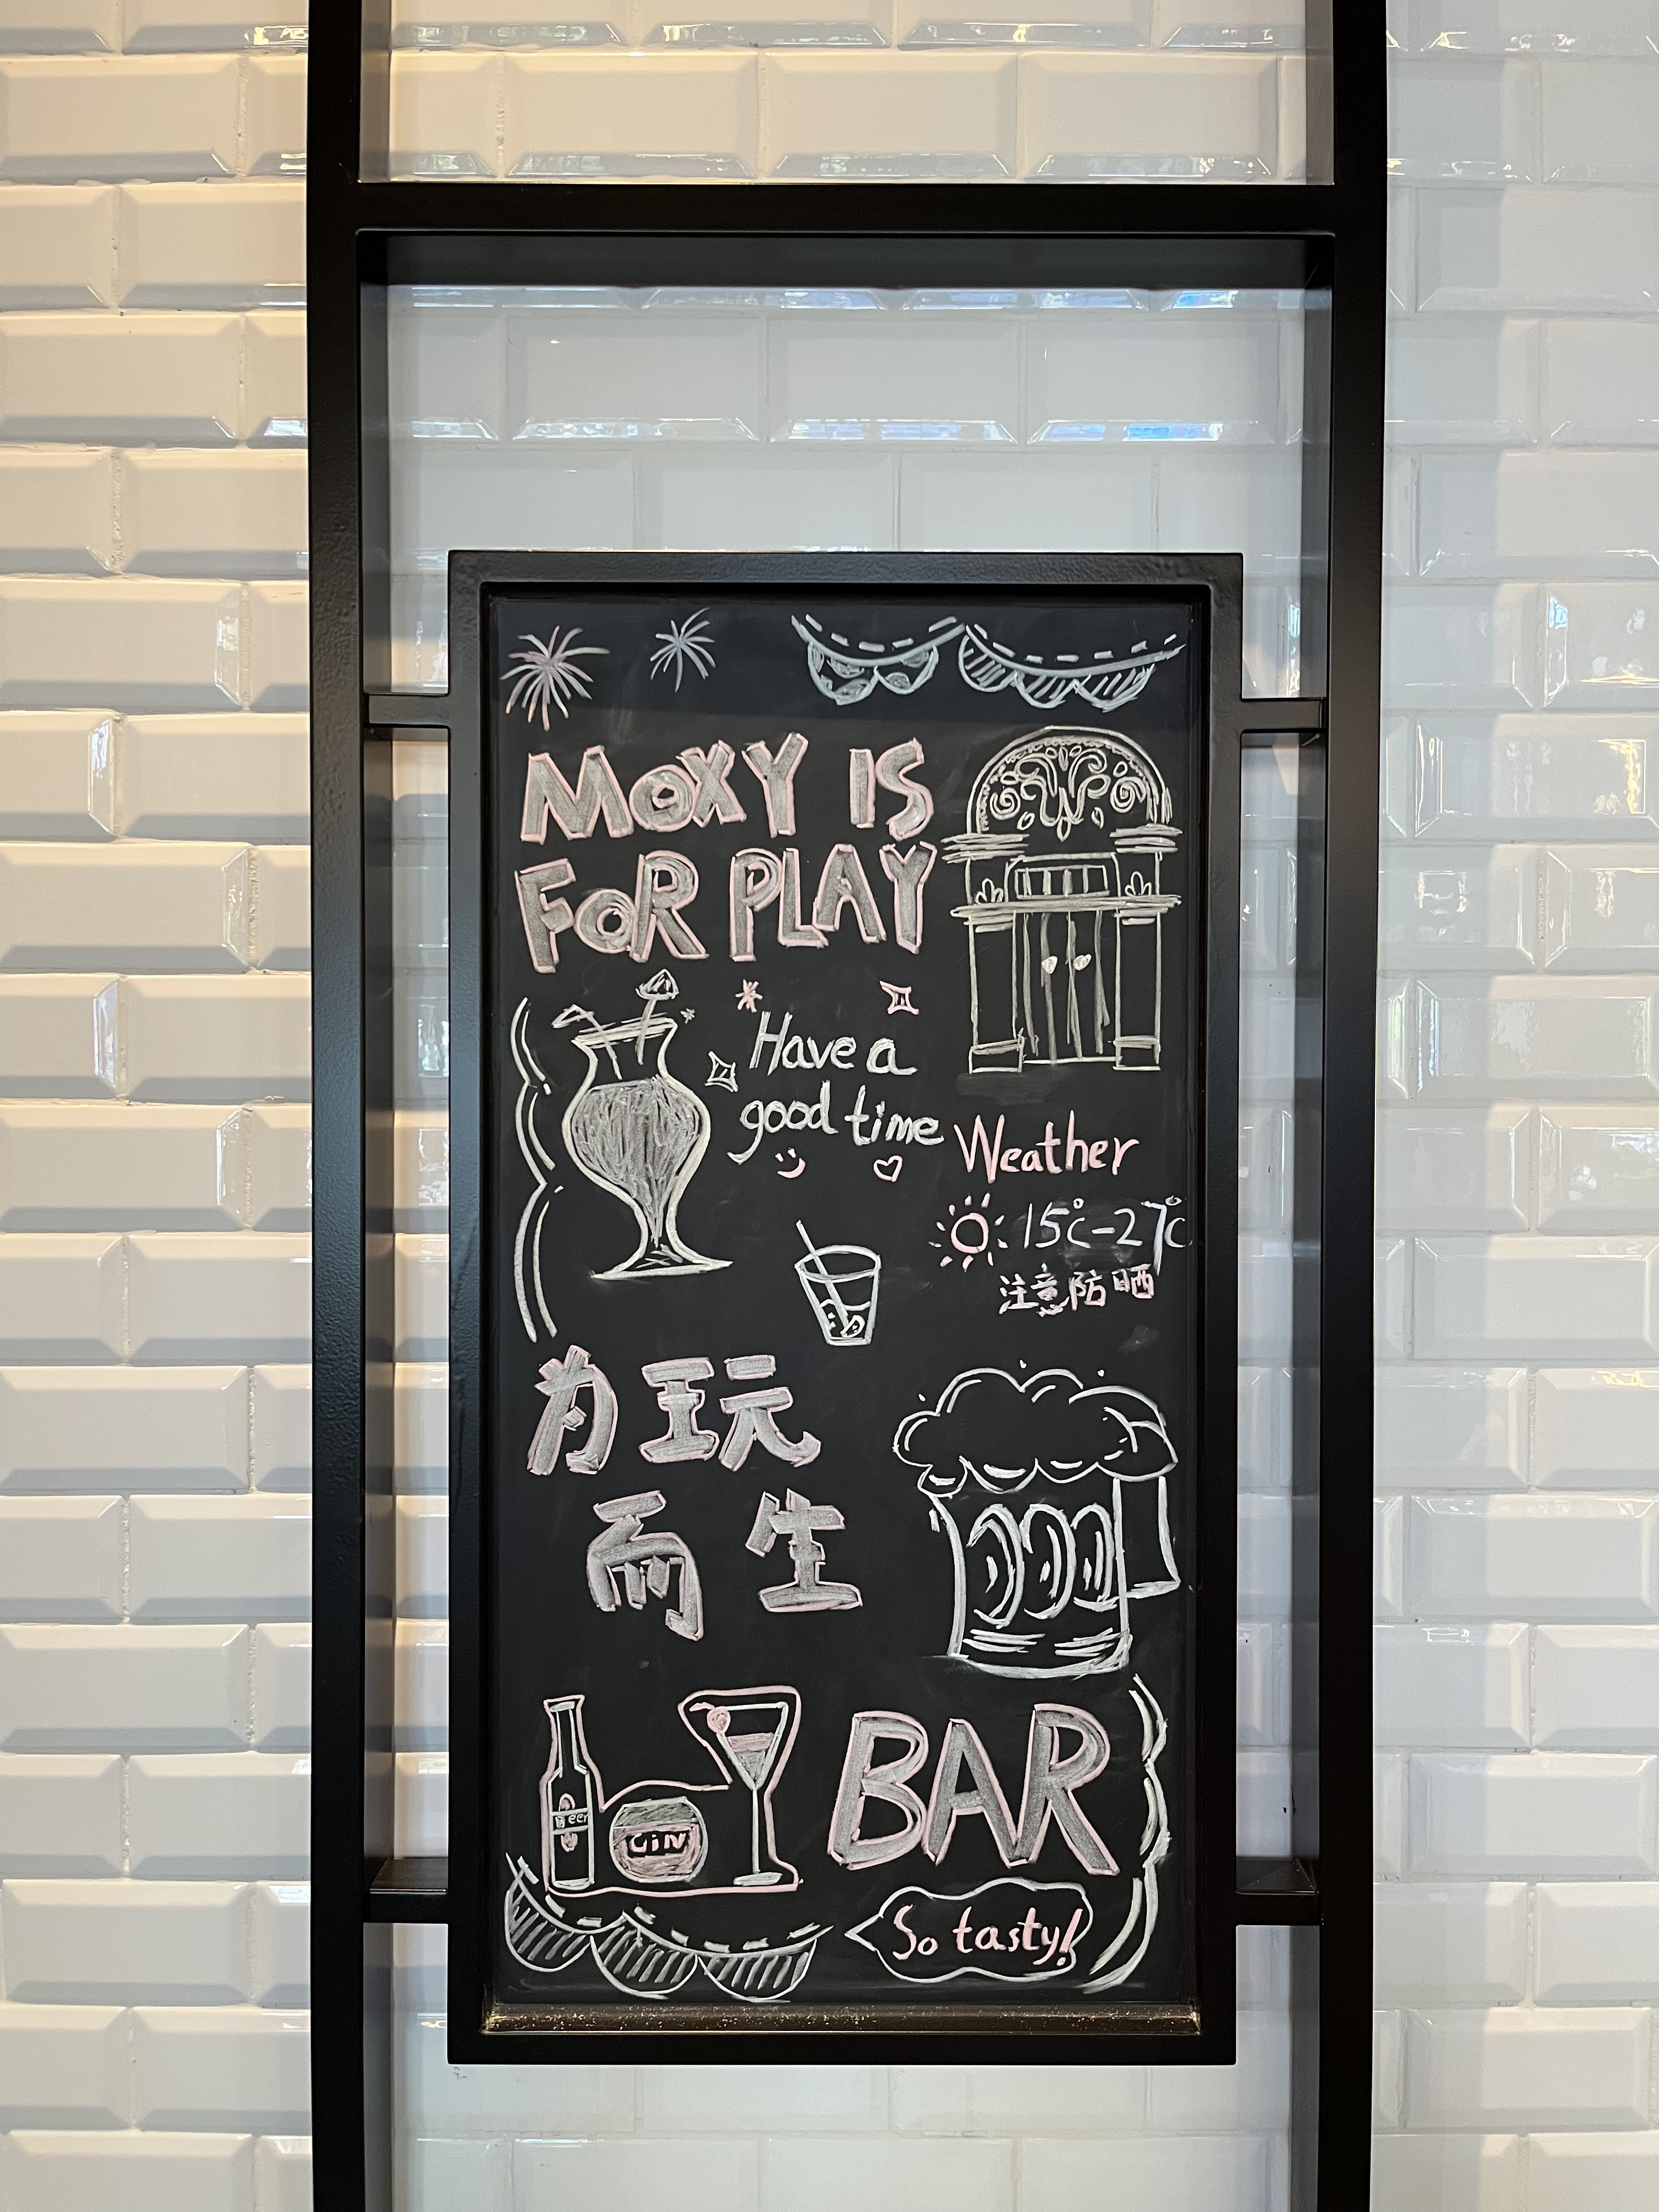 MOXY IS
FOR PLAY
Have a
good time
Weather
15°C-27°C
注意防晒
为玩
而生
Beer
GIN
BAR
So tasty!